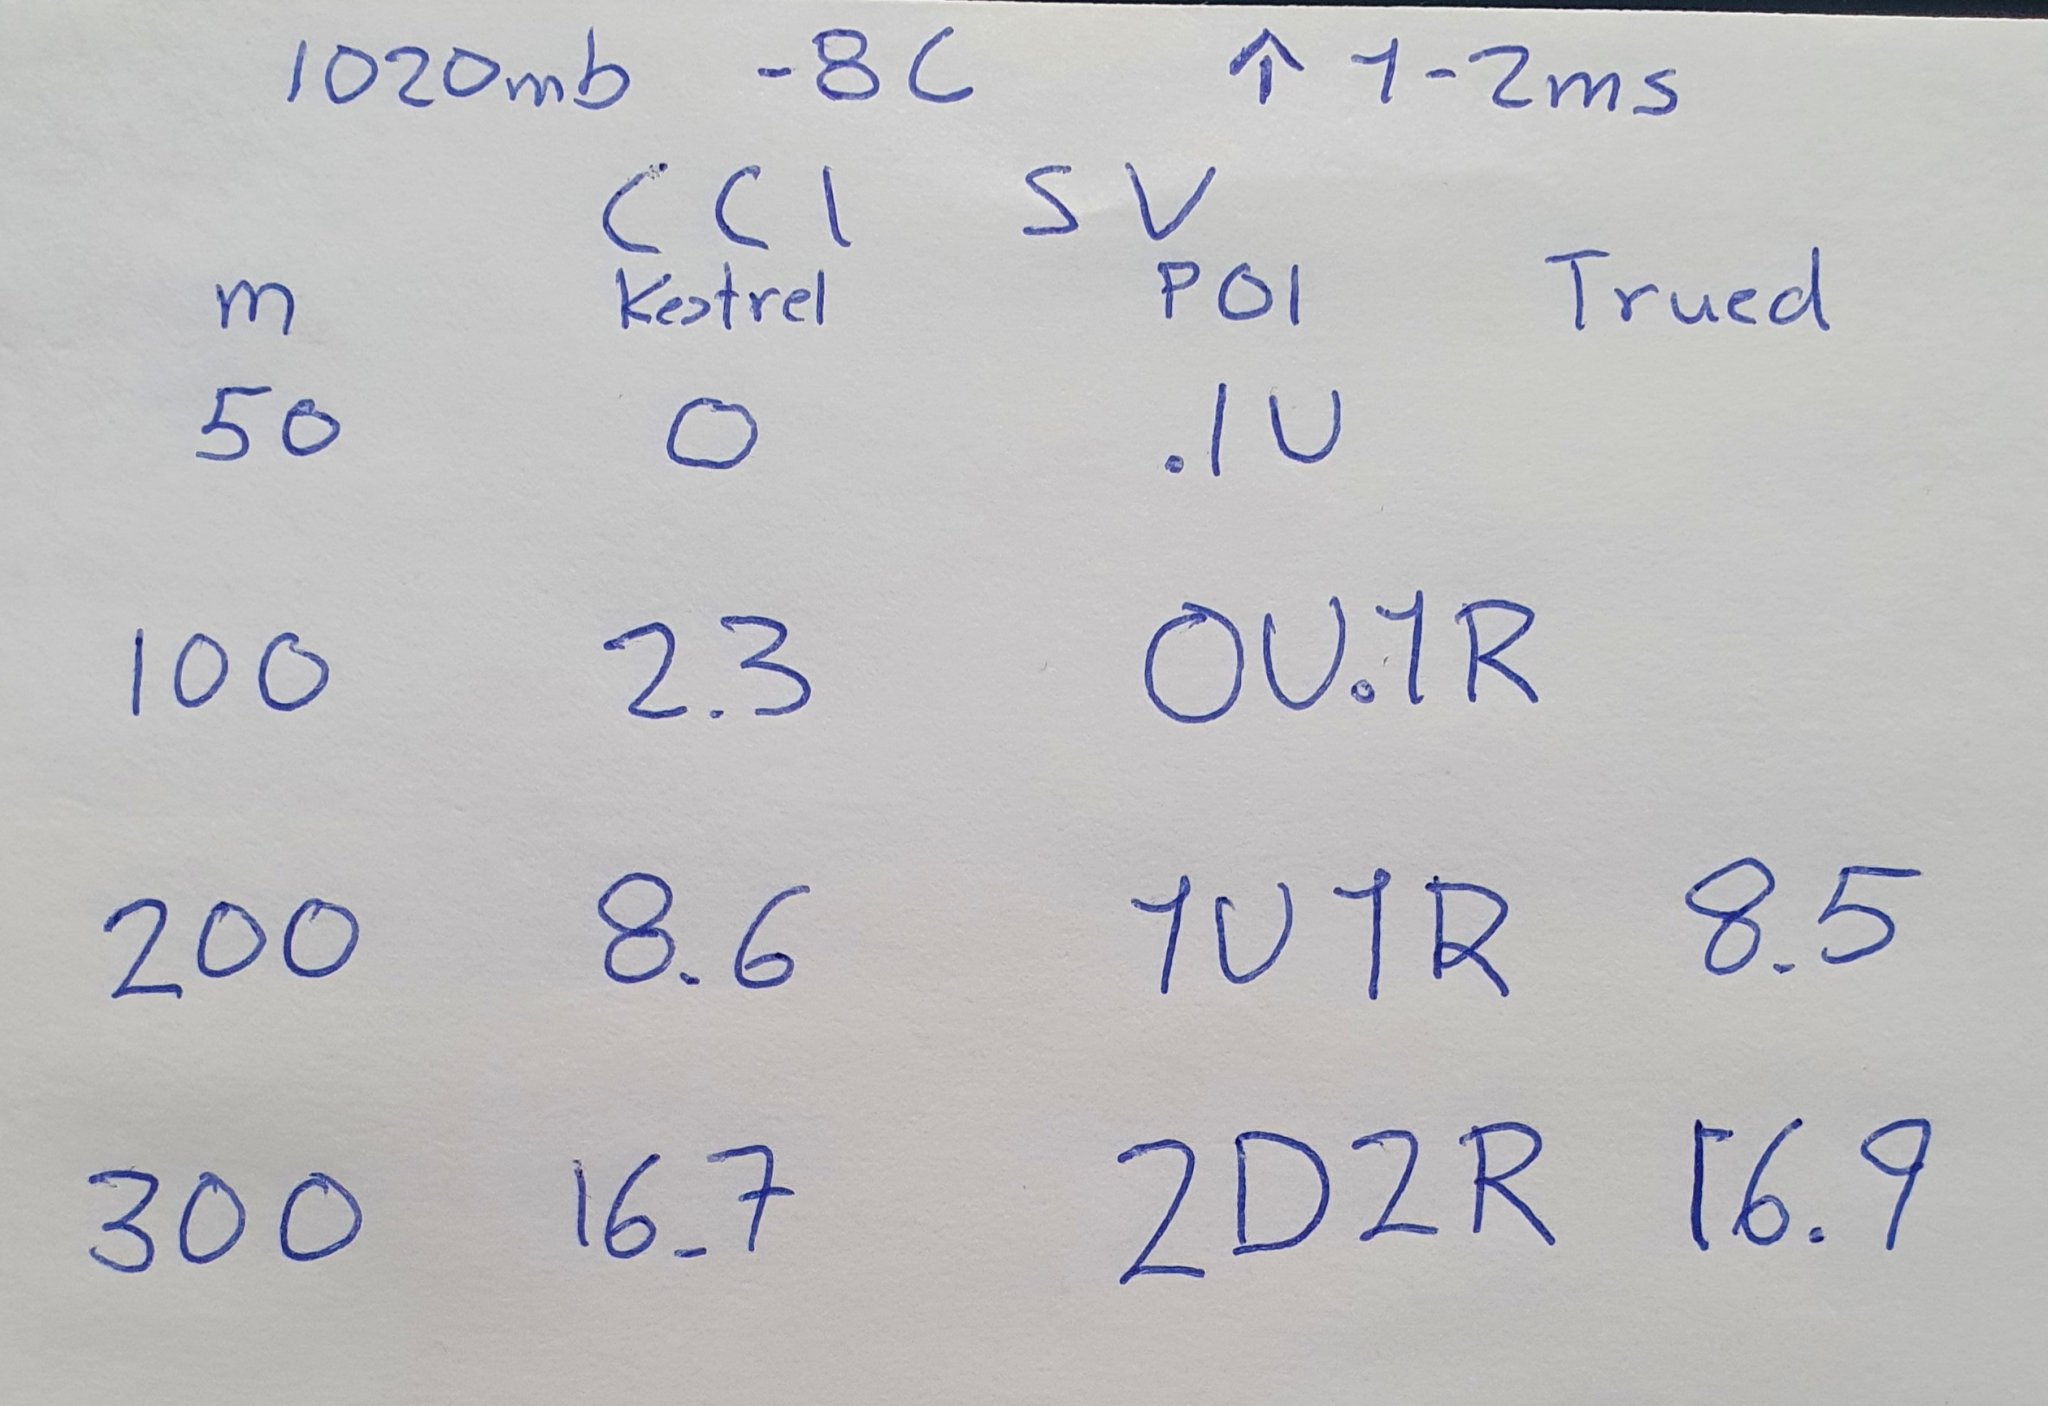 1020mb -8C ↑ 1-2ms
CCI SV
m Kestrel POI Trued
50 0 .1U
100 2.3 0U.1R
200 8.6 1U1R 8.5
300 16.7 2D2R 16.9